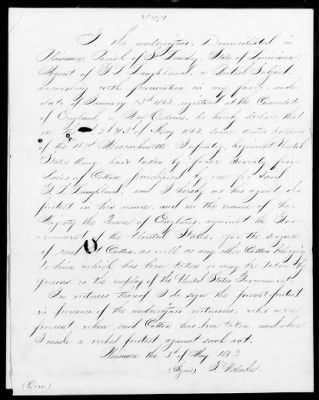 I the undersigned, Domiciliated in
Plaisance, Parish of St Landry, State of Louisiana,
Agent of F. L. Langhland, a British Subject
according with procuration in my favor, under
date of January 13th 1863, registered at the Consulate
of England in New Orleans, do hereby declare that
on 2d & 3d of May 1863, some armed soldiers
of the 41st Massachusetts Infantry Regiment United
States Army have taken by force Seventy four
Bales of Cotton purchased by me for said
F. L. Langhland, and I hereby as his agent do
protest in his name, and in the name of her
Majesty the Queen of England, against the Go-
vernment of the United States, for the seizure
of said Cotton, as well as any other Cotton belonging
to him which has been taken or may be taken by
persons in the employ of the United States Government.
In witness thereof I do sign the present protest
in presence of the undersigned witnesses, who were
present when said Cotton has been taken, and when
I made a verbal protest against such act.
Plaisance the 5th of May 1863
(Signed)
(One)